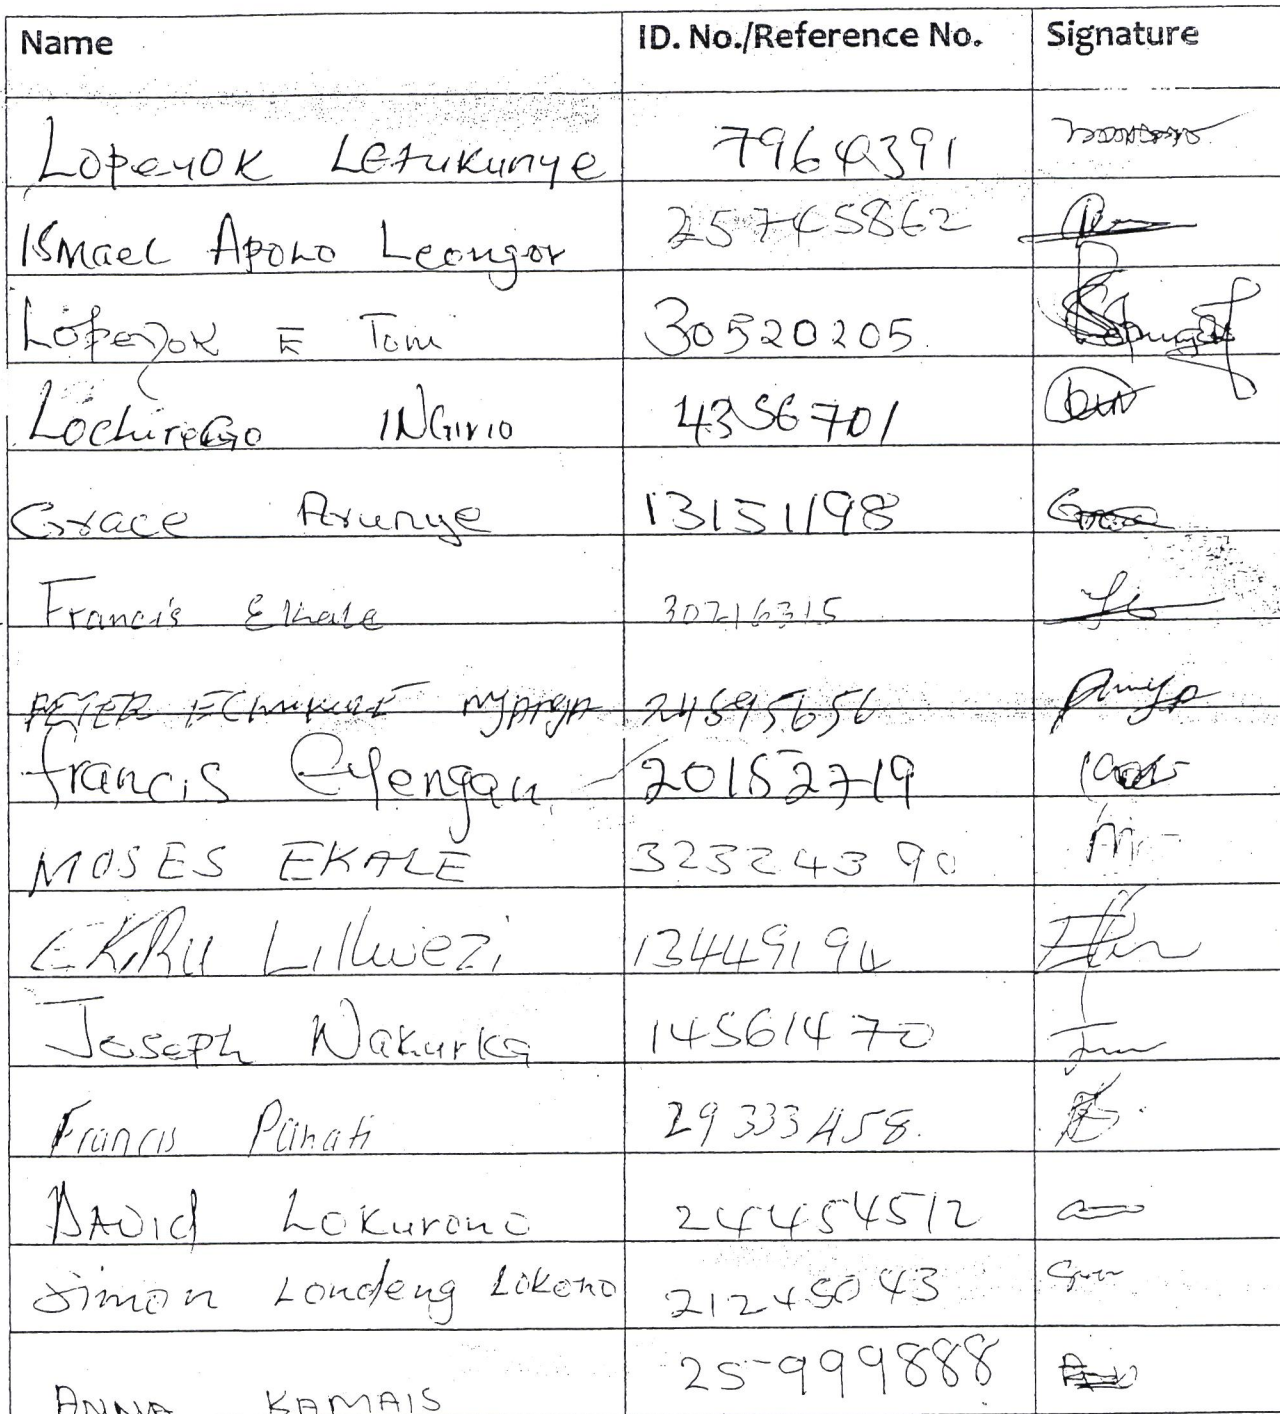 Name ID. No./Reference No. Signature
Lopeyok Letukunye 7964391
ISMael Apoko Leongor 25745862
Lopeyok E Tom 30520205
Lochireggo INGirio 4356701
Grace Arunye 13151198
Francis Ekale 30216315
PETER 24595656
Francis Eyengan 20152719
MOSES EKALE 32324390
EKRU Lilluezi 13449194
Joseph Nakurka 14561470
Francis Panati 29333458
DAVId Lokurono 24454512
Simon Londeng Lokono 21245043
25-999888
ANNA KAMAIS